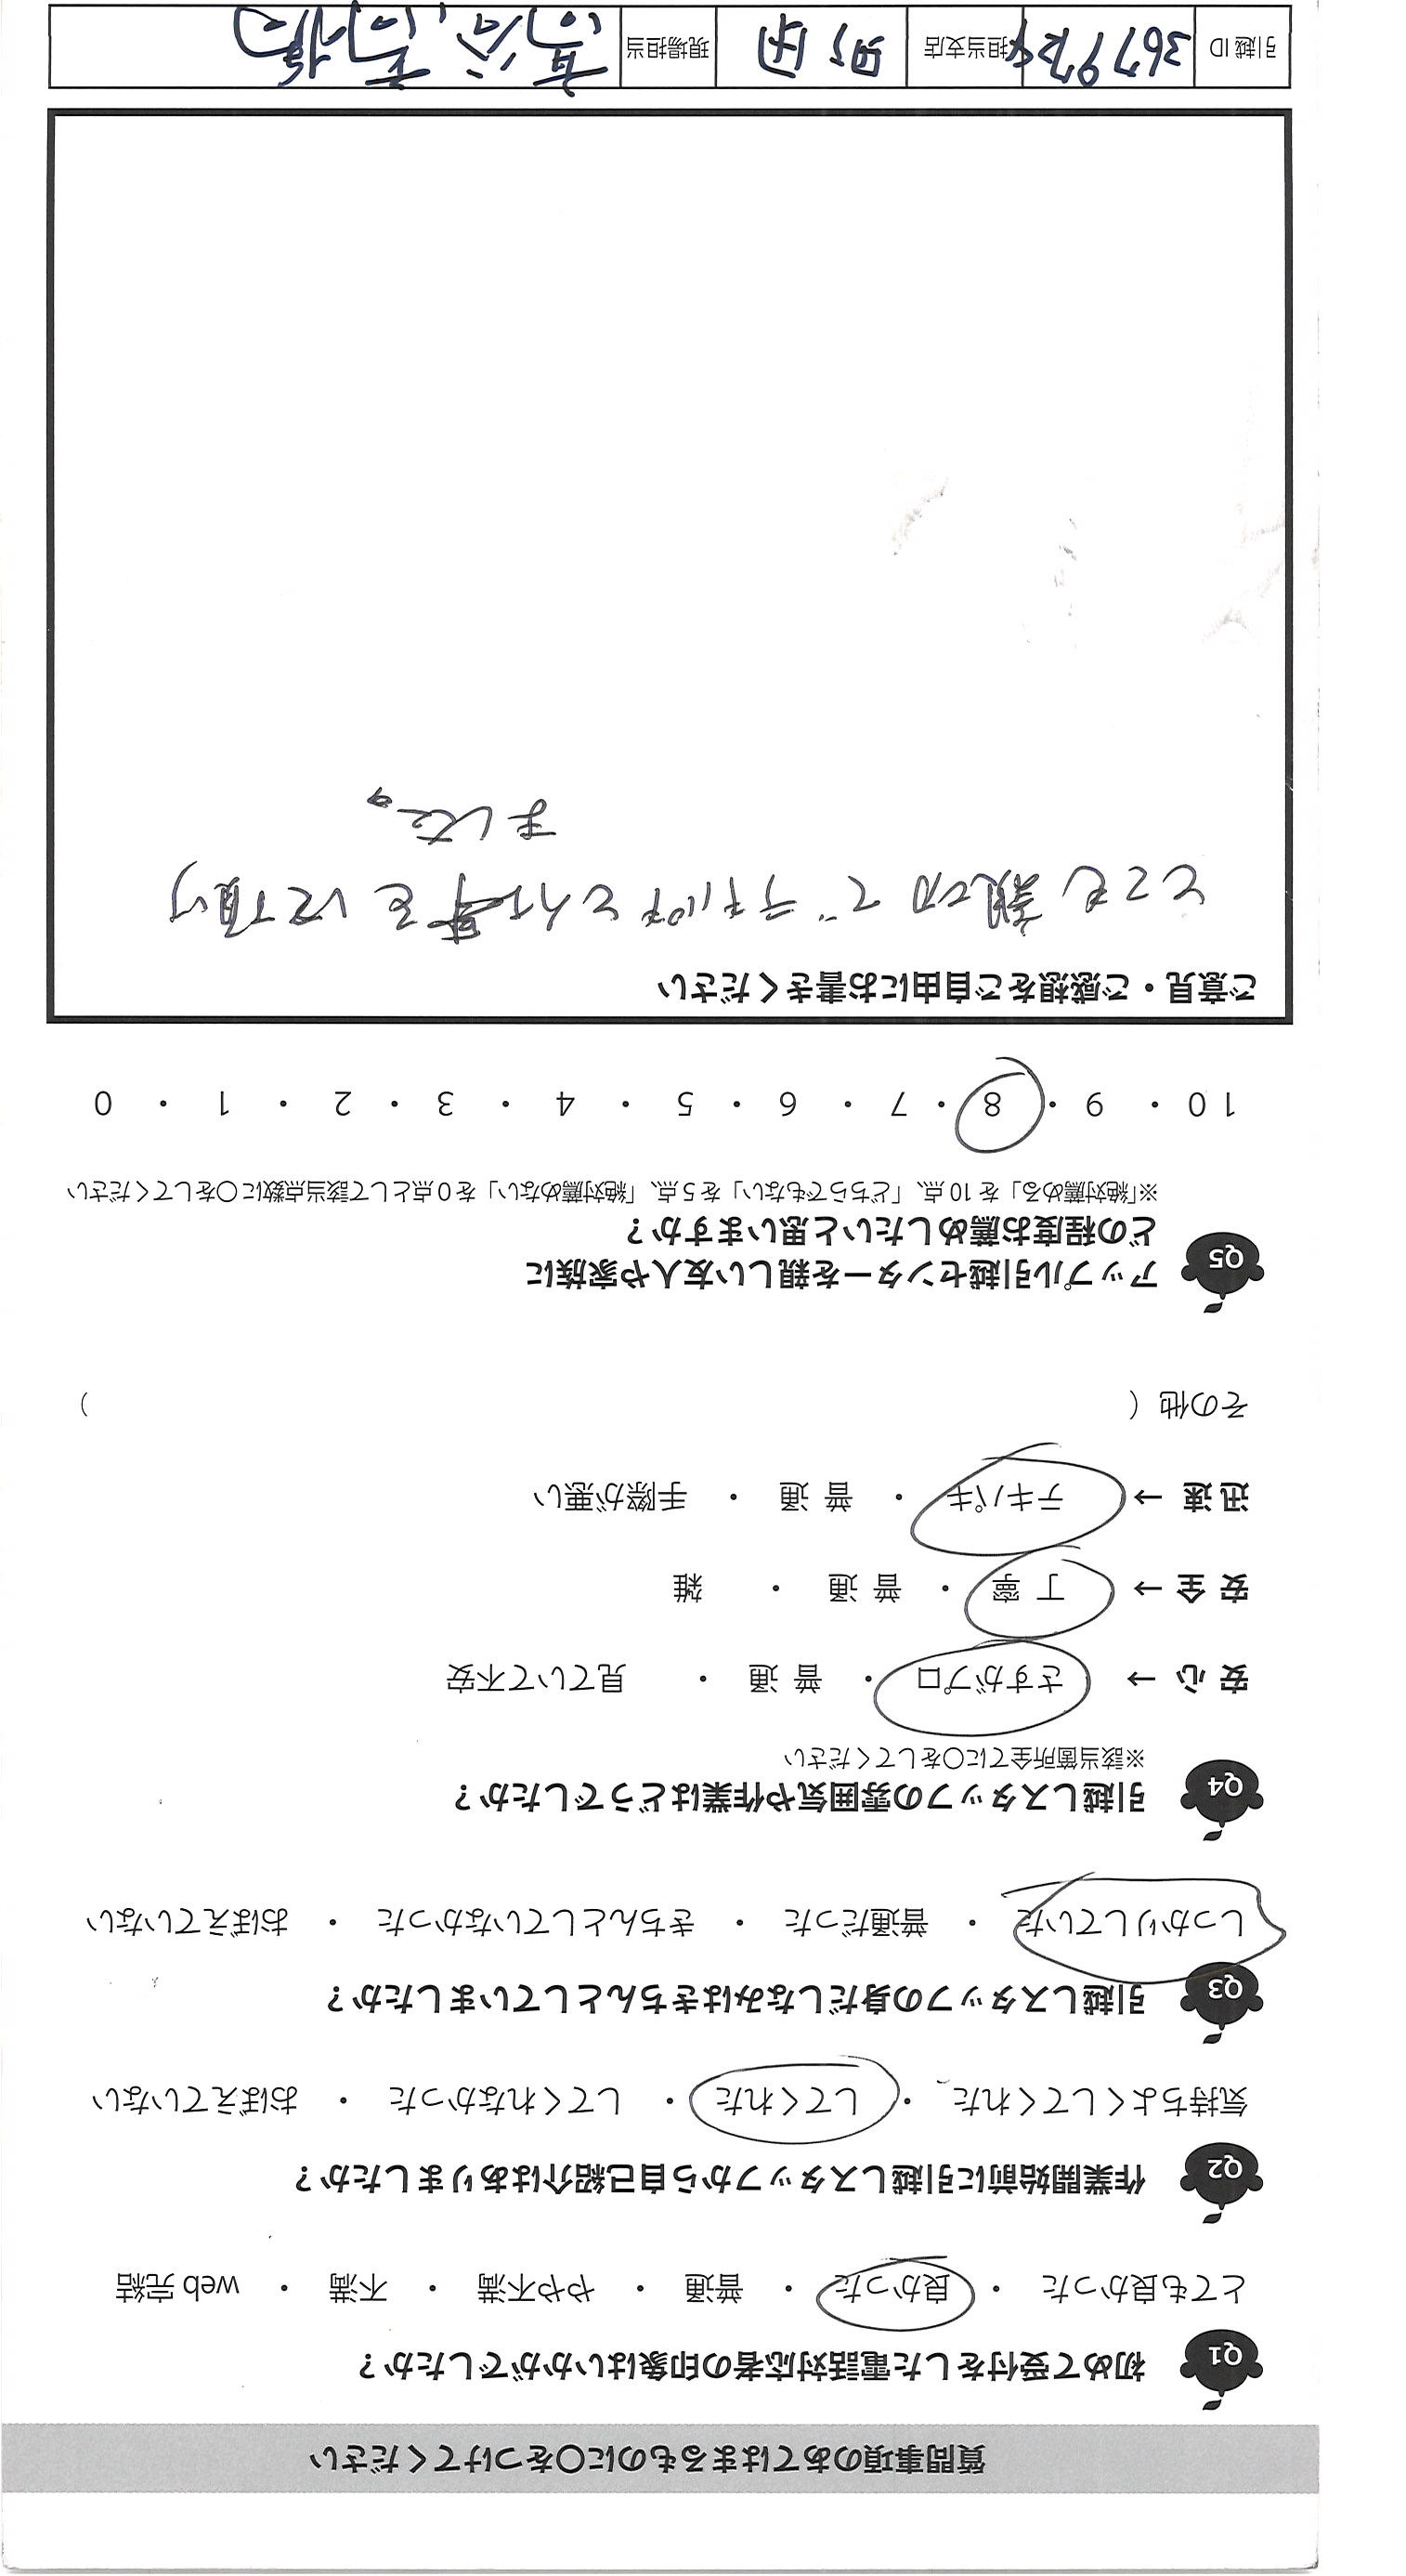 質問事項のあてはまるものに〇をつけてください
Q1 初めて受付をした電話対応者の印象はいかがでしたか？
とても良かった ・ 良かった ・ 普通 ・ やや不満 ・ 不満 ・ web 完結
Q2 作業開始前に引越しスタッフから自己紹介はありましたか？
気持ちよくしてくれた ・ してくれた ・ してくれなかった ・ おぼえていない
Q3 引越しスタッフの身だしなみはきちんとしていましたか？
しっかりしていた ・ 普通だった ・ きちんとしていなかった ・ おぼえていない
Q4 引越しスタッフの雰囲気や作業はどうでしたか？
※該当箇所全てに〇をしてください
安心 → さすがプロ ・ 普通 ・ 見ていて不安
安全 → 丁寧 ・ 普通 ・ 雑
迅速 → テキパキ ・ 普通 ・ 手際が悪い
その他（ ）
Q5 アップル引越センターを親しい友人や家族に
どの程度お薦めしたいと思いますか？
※「絶対薦める」を10点、「どちらでもない」を5点、「絶対薦めない」を0点として該当点数に〇をしてください
10 ・ 9 ・ 8 ・ 7 ・ 6 ・ 5 ・ 4 ・ 3 ・ 2 ・ 1 ・ 0
ご意見・ご感想をご自由にお書きください
とても親切でテキパキと仕事をして頂り
ました。
引越ID 3679724 担当支店 現場担当 高橋